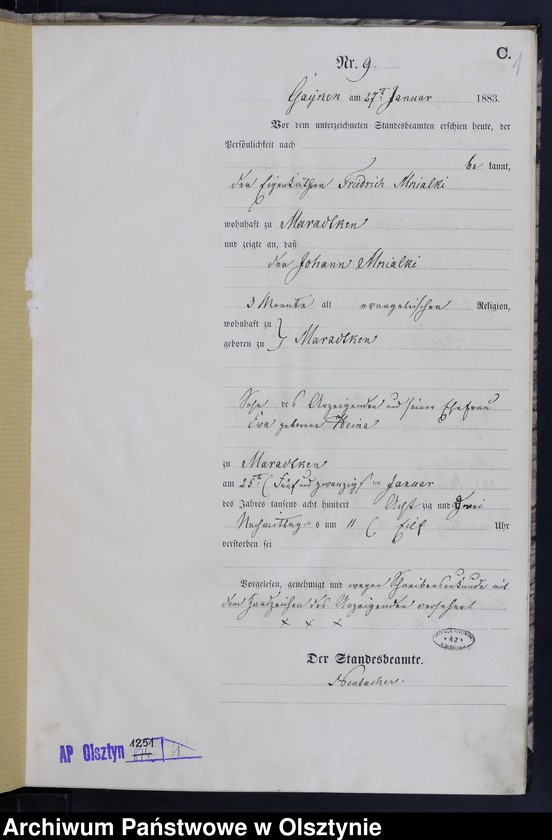 C.
1
Nr. 9.
Gaynen am 27t. Januar 1883.
Vor dem unterzeichneten Standesbeamten erschien heute, der
Persönlichkeit nach
be kannt,
den Eigenkäthner Friedrich Mnialki
wohnhaft zu Maradtken
und zeigte an, daß
der Johann Mnialki
3 Monate alt evangelischen Religion,
wohnhaft zu
geboren zu Maradtken
Sohn des Anzeigenden und seiner Ehefrau
Eva geborene Heina
zu Maradtken
am 25t. (Fünf und zwanzigs ten Januar
des Jahres tausend acht hundert Acht zig und Drei
Nachmittags um 11 ( Eilf Uhr
verstorben sei
Vorgelesen, genehmigt und wegen Schreibensunkunde mit
dem Handzeichen des Anzeigenden versehen
x x x
Der Standesbeamte.
42
AP Olsztyn 1251
1
Archiwum Państwowe w Olsztynie